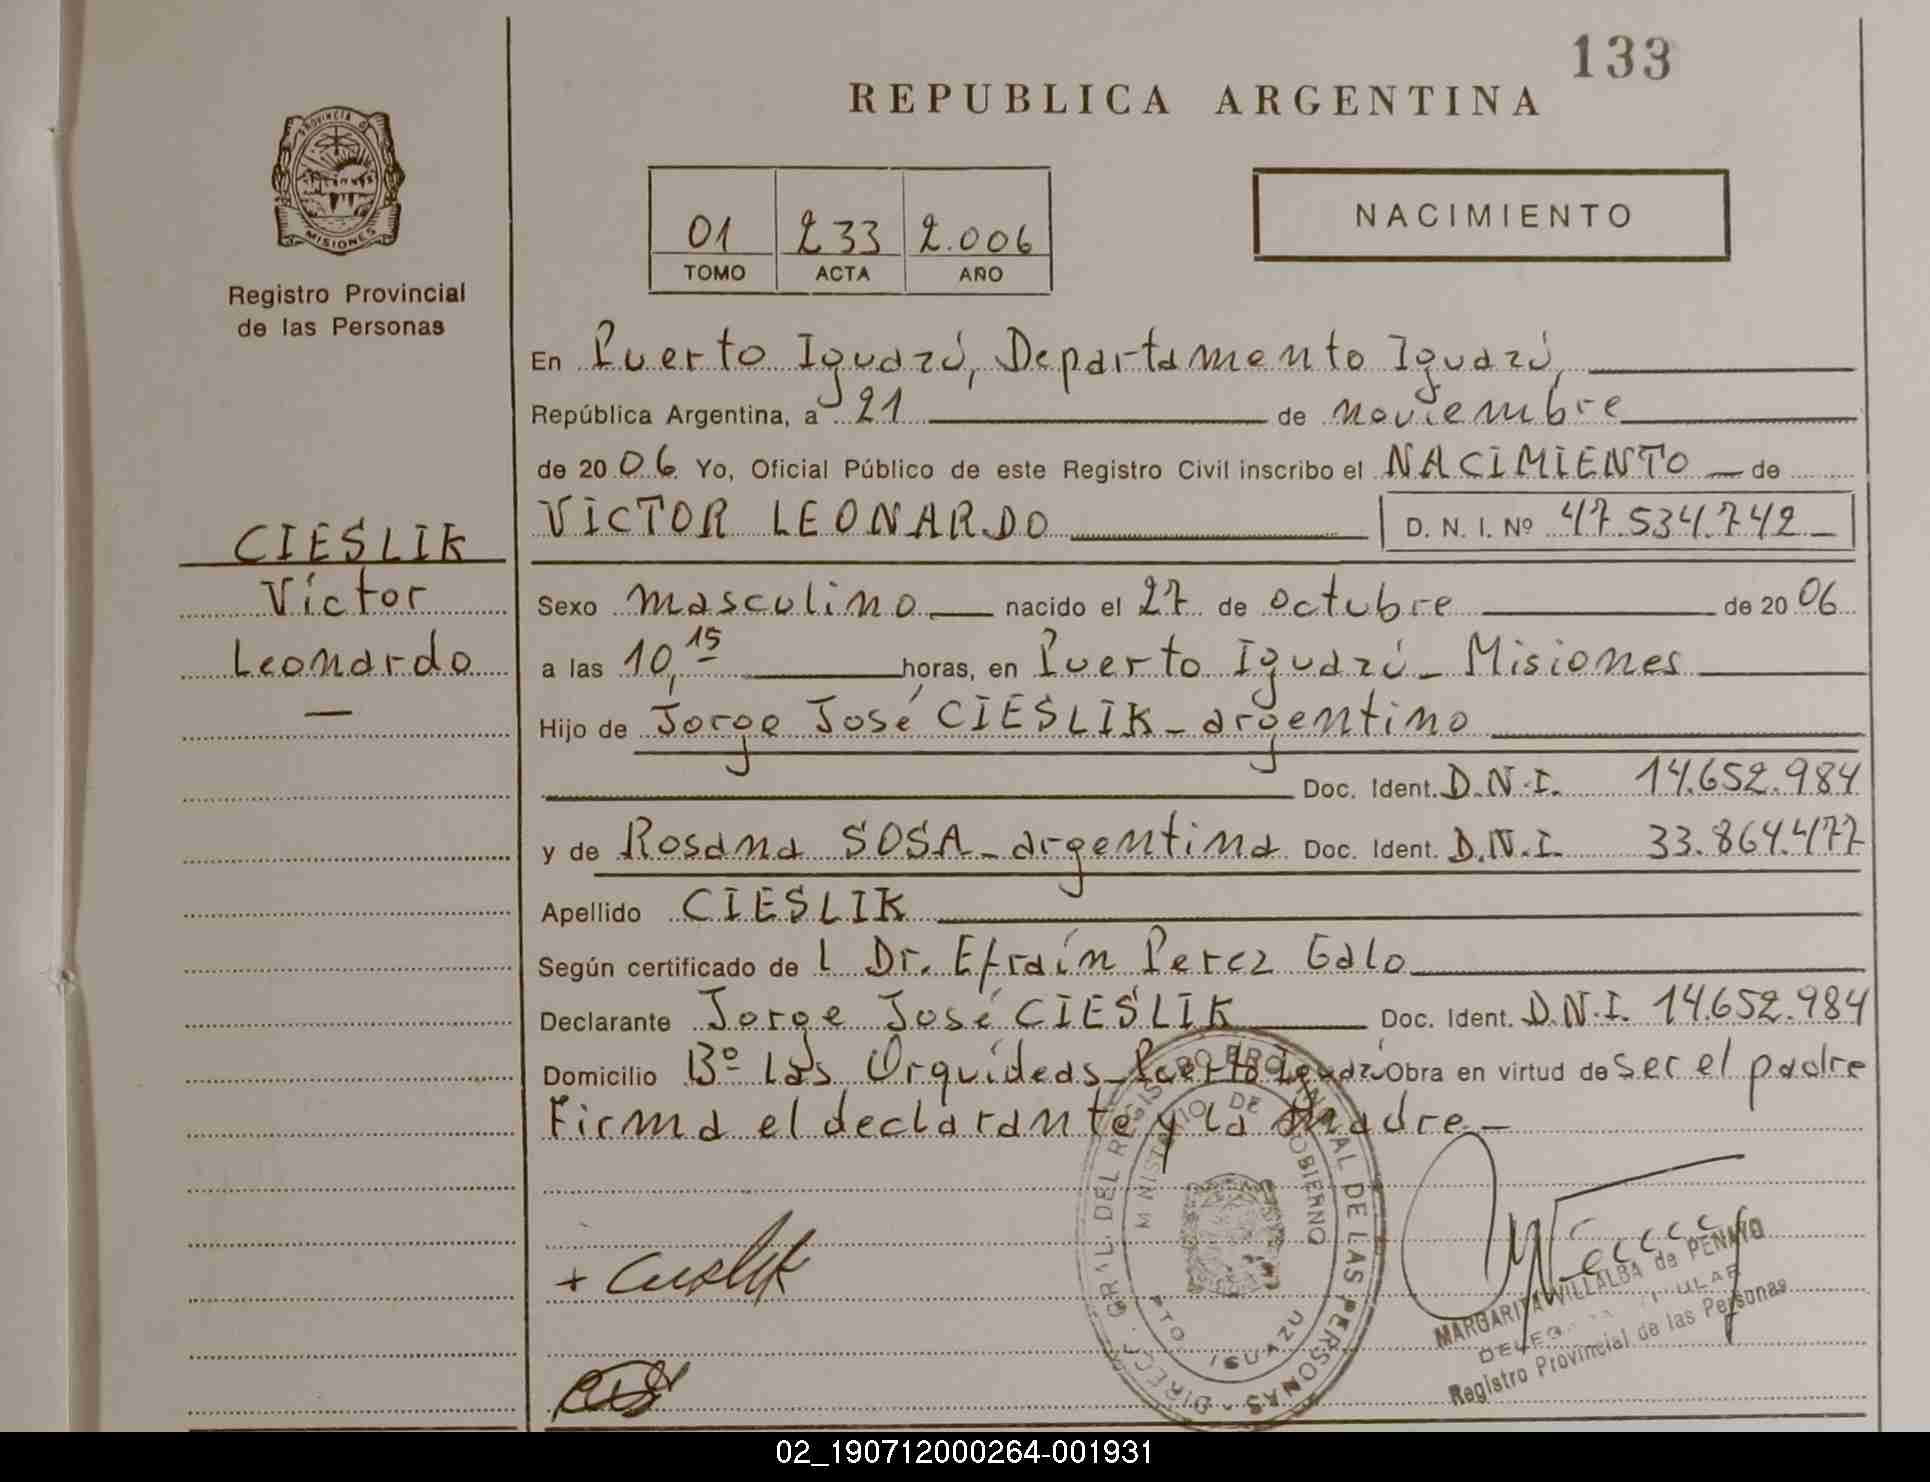 133
REPUBLICA ARGENTINA
PROVINCIA DE
MISIONES
Registro Provincial
de las Personas
01 233 2.006
TOMO ACTA AÑO
NACIMIENTO
En Puerto Iguazú, Departamento Iguazú,
República Argentina, a 21 de noviembre
de 20 06 Yo, Oficial Público de este Registro Civil inscribo el NACIMIENTO de
VÍCTOR LEONARDO D. N. I. Nº 47.534.742
CIESLIK
Víctor
Leonardo
Sexo masculino nacido el 27 de octubre de 20 06
a las 10,15 horas, en Puerto Iguazú - Misiones
Hijo de Jorge José CIESLIK - argentino
Doc. Ident. D.N.I. 14.652.984
y de Rosana SOSA - argentina Doc. Ident. D.N.I. 33.864.477
Apellido CIESLIK
Según certificado de l Dr. Efraín Perez Galo
Declarante Jorge José CIESLIK Doc. Ident. D.N.I. 14.652.984
Domicilio Bº Las Orquídeas - Puerto Iguazú Obra en virtud de ser el padre
Firma el declarante y la madre -
DIRECC. GRAL. DEL REGISTRO PROVINCIAL DE LAS PERSONAS
MINISTERIO DE GOBIERNO
PTO. IGUAZU
MARGARITA VILLALBA de PENAYO
Registro Provincial de las Personas
02_190712000264-001931